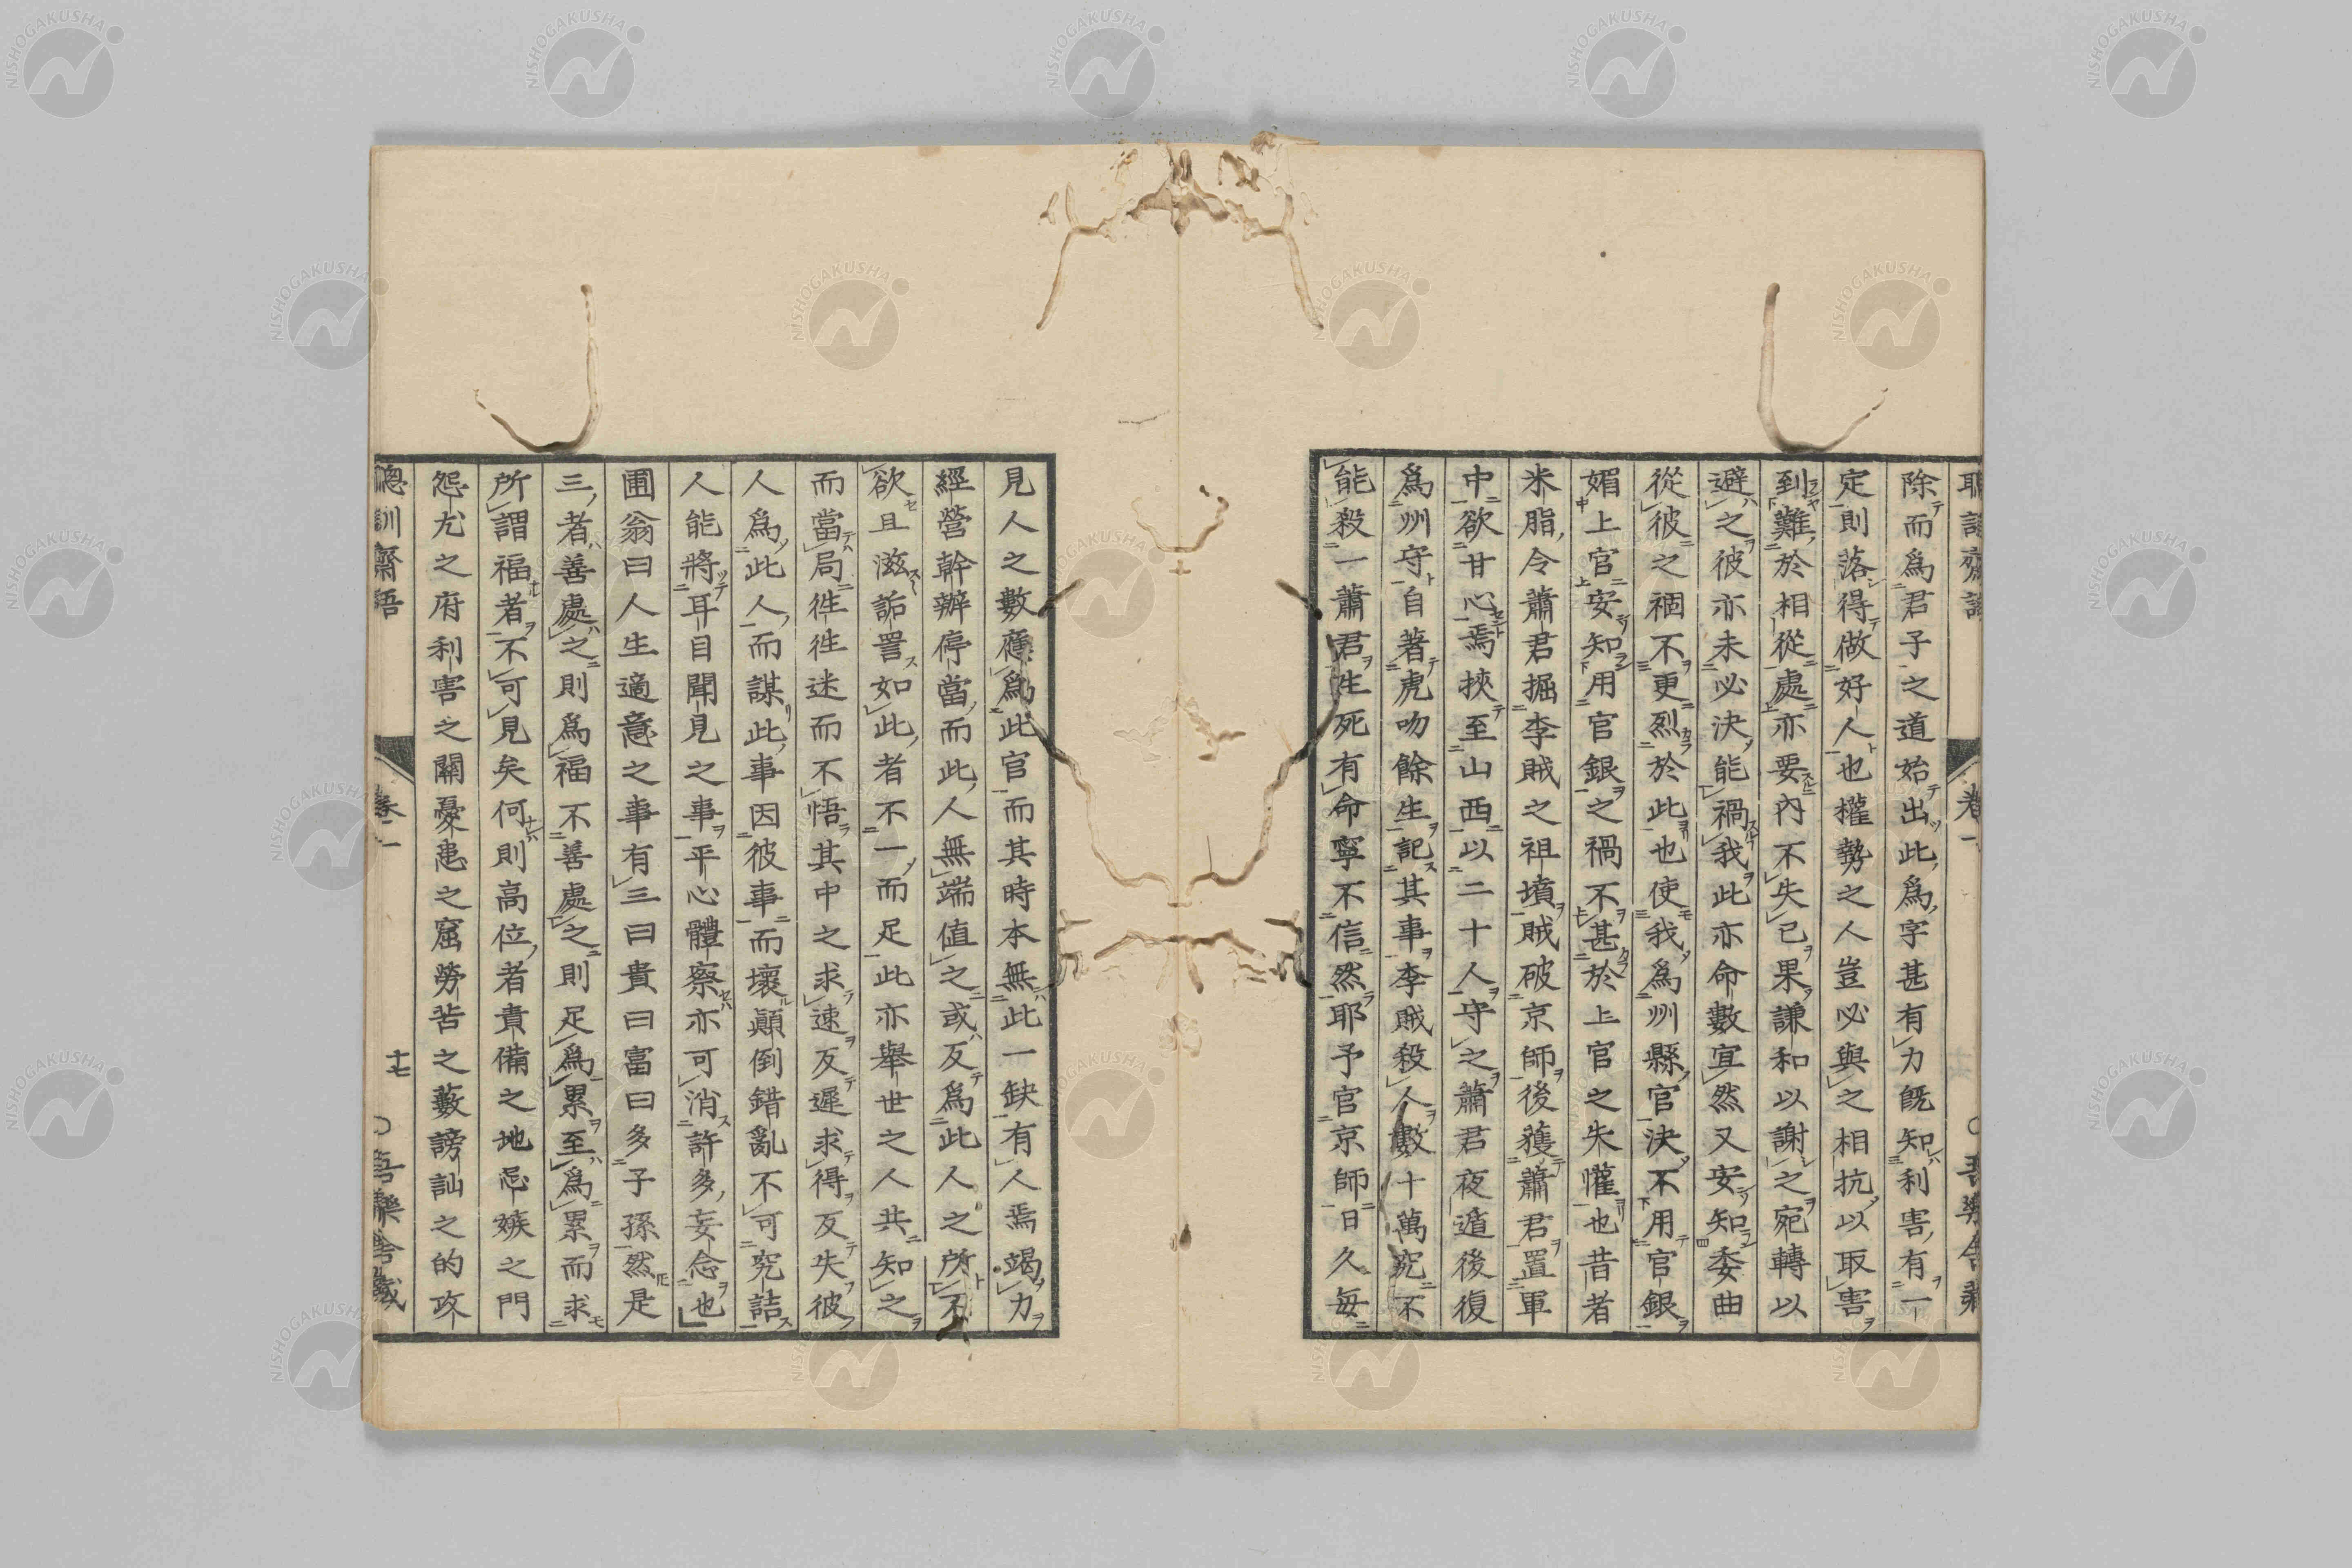 除而爲君子之道始出此爲字甚有力既知利害有一
定則落得做好人也權勢之人豈必與之相抗以取害
到難於相從處亦要內不失己果謙和以謝之宛轉以
避之彼亦未必決能禍我此亦命數宜然又安知委曲
從彼之禍不更烈於此也使我爲州縣官決不用官銀
媚上官安知用官銀之禍不甚於上官之失懽也昔者
米脂令蕭君掘李賊之祖墳賊破京師後獲蕭君置軍
中欲甘心焉挾至山西以二十人守之蕭君夜遁後復
爲州守自著虎吻餘生記其事李賊殺人數十萬究不
能殺一蕭君生死有命寧不信然耶予官京師日久每
見人之數應爲此官而其時本無此一缺有人焉竭力
經營幹辦停當而此人無端值之或反爲此人之所不
欲且滋詬詈如此者不一而足此亦舉世之人共知之
而當局徃徃迷而不悟其中之求速反遲求得反失彼
人爲此人而謀此事因彼事而壞顛倒錯亂不可究詰
人能將耳目聞見之事平心體察亦可消許多妄念也
圃翁曰人生適意之事有三曰貴曰富曰多子孫然是
三者善處之則爲福不善處之則足爲累至爲累而求
所謂福者不可見矣何則高位者責備之地忌嫉之門
怨尤之府利害之關憂患之窟勞苦之藪謗訕之的攻
聰訓齋語 卷一 十七 吾樂舍藏